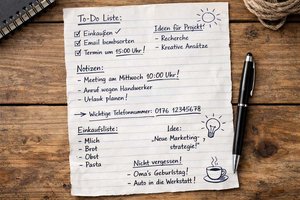 To-Do Liste:
☑ Einkaufen ✓
☑ Email bembsorten
☑ Termin um 15:00 Uhr!
Ideen für Projekt
- Recherche
- Kreative Ansätze
Notizen:
- Meeting am Mittwoch 10:00 Uhr!
- Anruf wegen Handwerker
- Urlaub planen!
→ Wichtige Telefonnummer: 0176 12345678
Einkaufsliste:
- Mlich
- Brot
- Obst
- Pasta
Idee:
„Neue Marketing-
strategie!"
Nicht vergessen!
- Oma's Geburtstag!
- Auto in die Werkstatt!